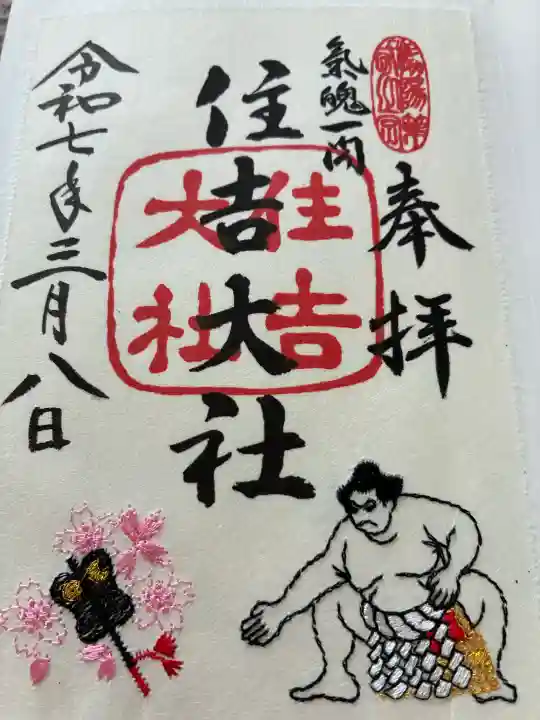 奉拝
氣魄一閃
住吉大社
住吉大社
令和七年三月八日